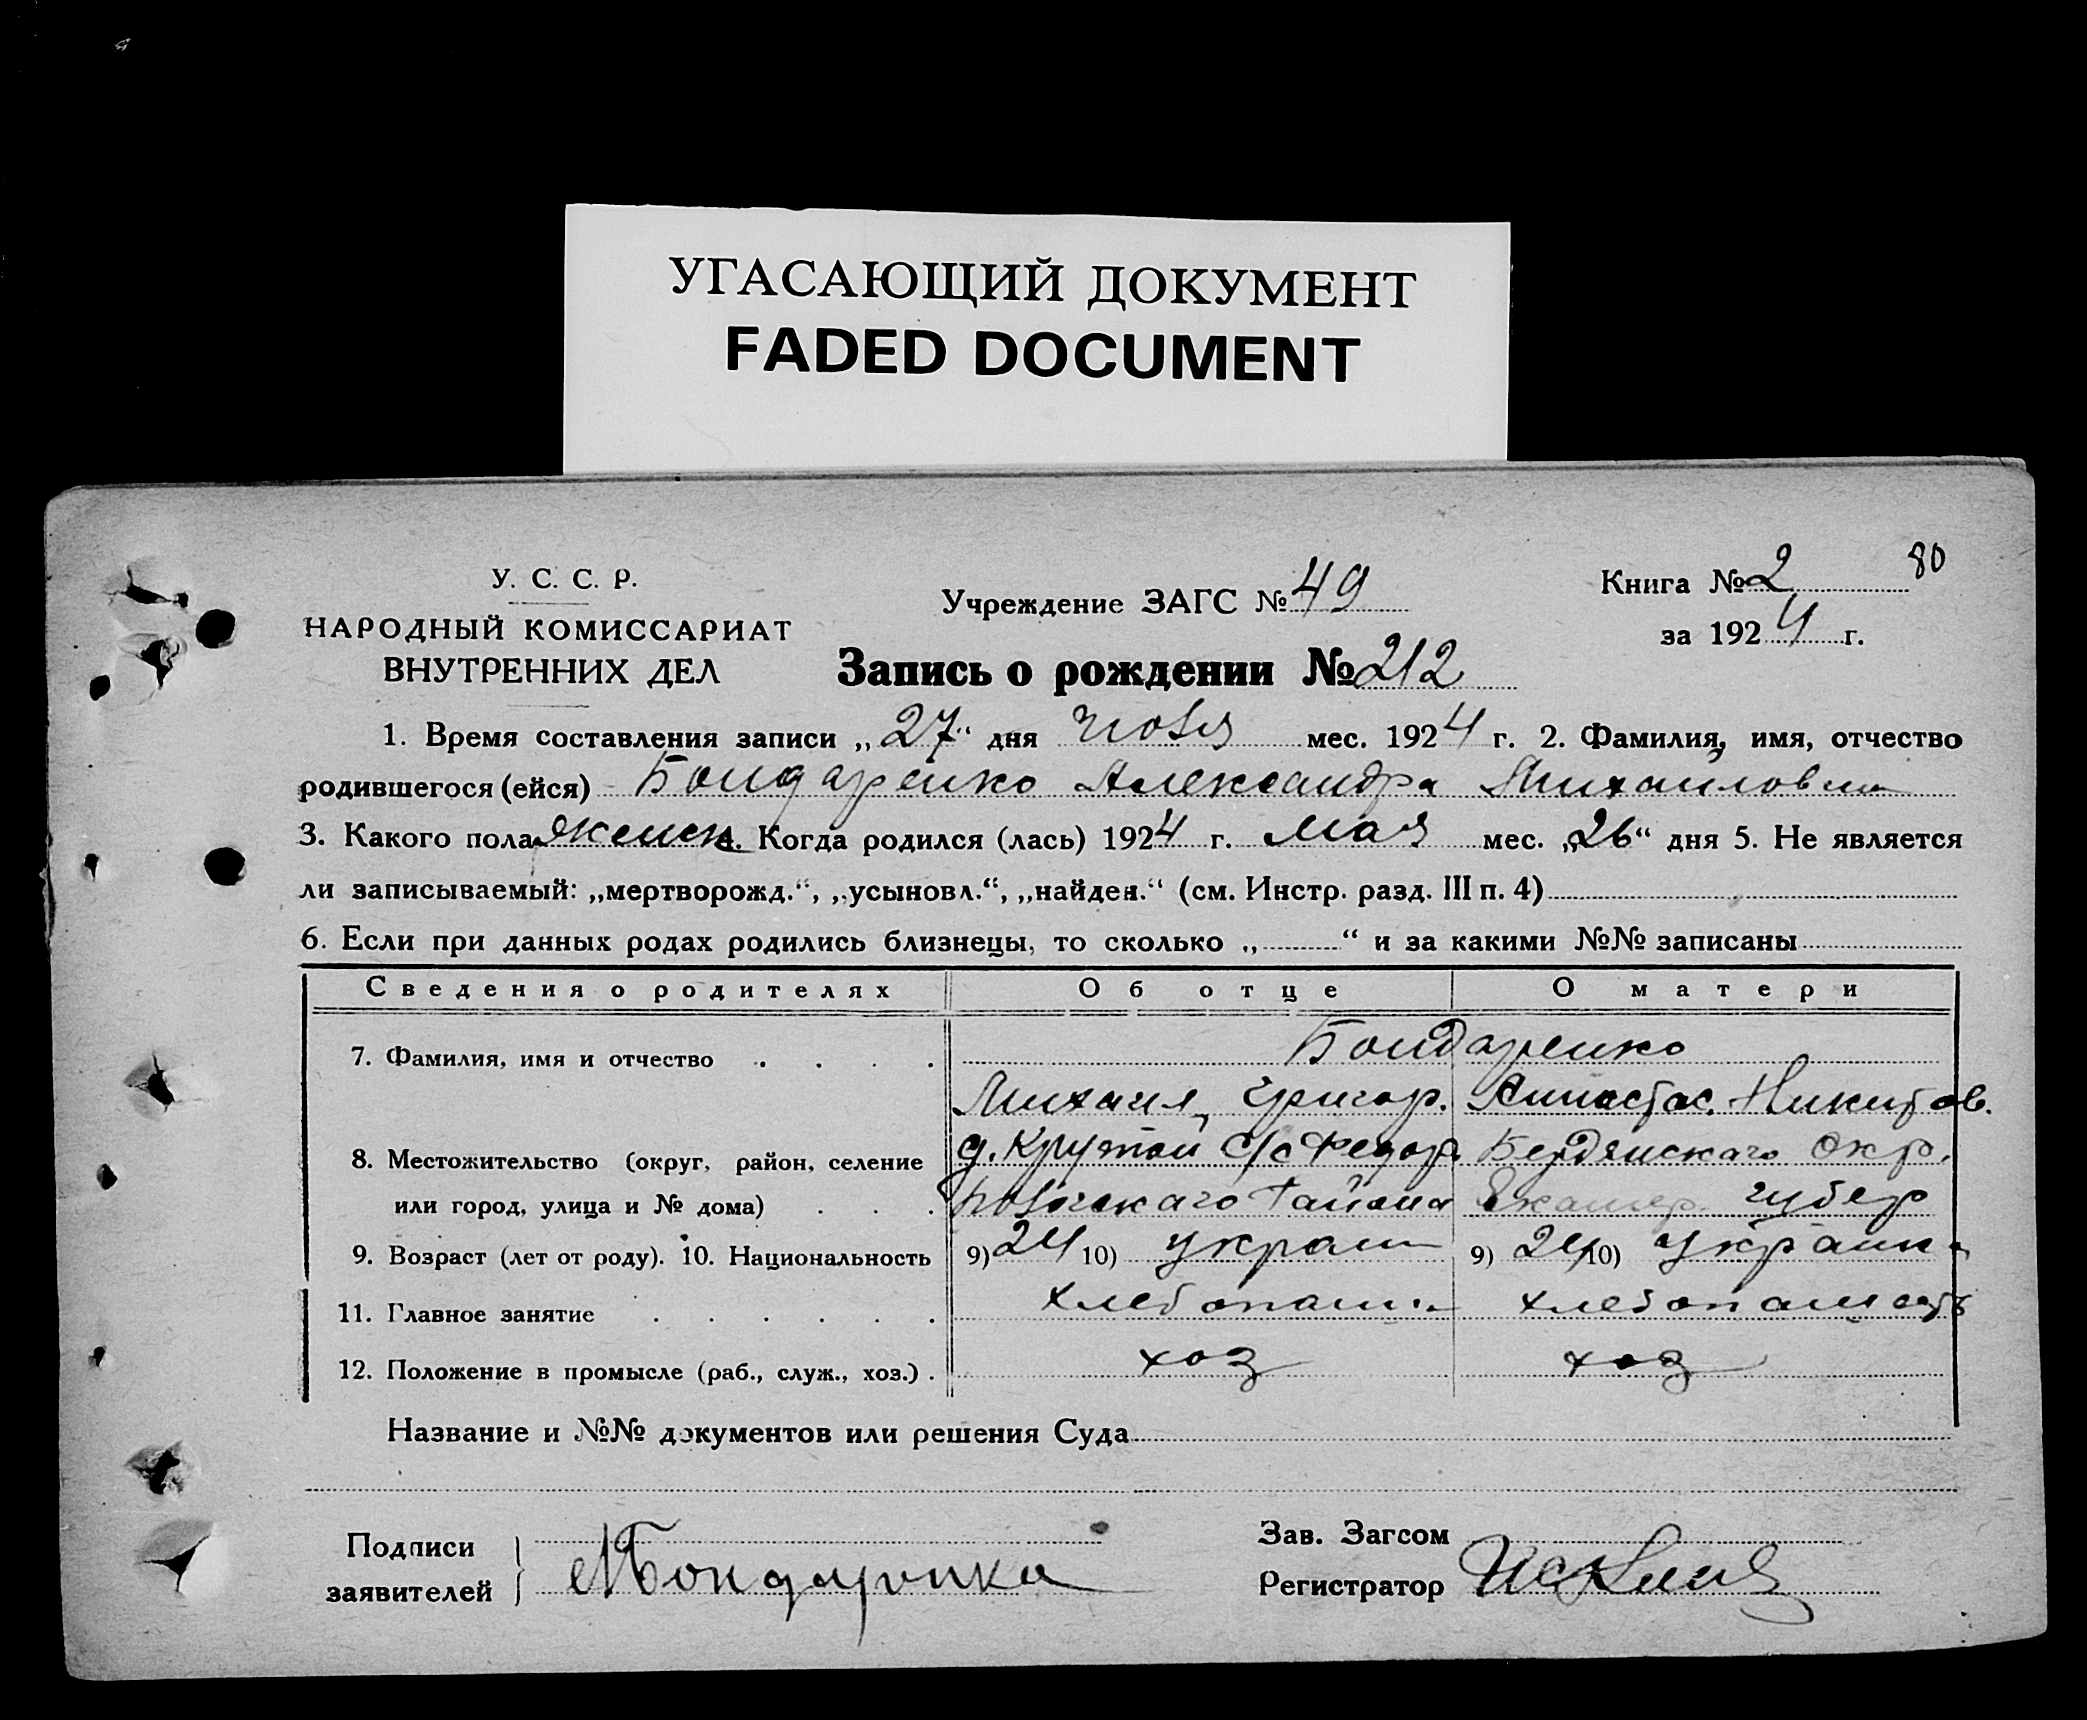 УГАСАЮЩИЙ ДОКУМЕНТ
FADED DOCUMENT
У. С. С. Р.
НАРОДНЫЙ КОМИССАРИАТ
ВНУТРЕННИХ ДЕЛ
Учреждение ЗАГС № 49
Книга № 2 80
за 1924 г.
Запись о рождении № 212
1. Время составления записи „27“ дня мес. 1924 г. 2. Фамилия, имя, отчество
родившегося (ейся) Бондаренко Александра Михайловна
3. Какого пола женск 4. Когда родился (лась) 1924 г. мая мес. „26“ дня 5. Не является
ли записываемый: „мертворожд.“, „усыновл.“, „найден.“ (см. Инстр. разд. III п. 4)
6. Если при данных родах родились близнецы, то сколько „ “ и за какими №№ записаны
Сведения о родителях Об отце О матери
7. Фамилия, имя и отчество . . . . Бондаренко
Михаил Григор. Анастас. Никитов.
8. Местожительство (округ, район, селение д. Крутой С/с Федор. Бердянскаго Окр.
или город, улица и № дома) . . . Района Екатер. губер
9. Возраст (лет от роду). 10. Национальность 9) 24 10) украин 9) 24 10) украинк
11. Главное занятие . . . . . . хлебопаш хлебопашество
12. Положение в промысле (раб., служ., хоз.) . хоз хоз
Название и №№ документов или решения Суда
Подписи
заявителей } МБондаренко
Зав. Загсом
Регистратор